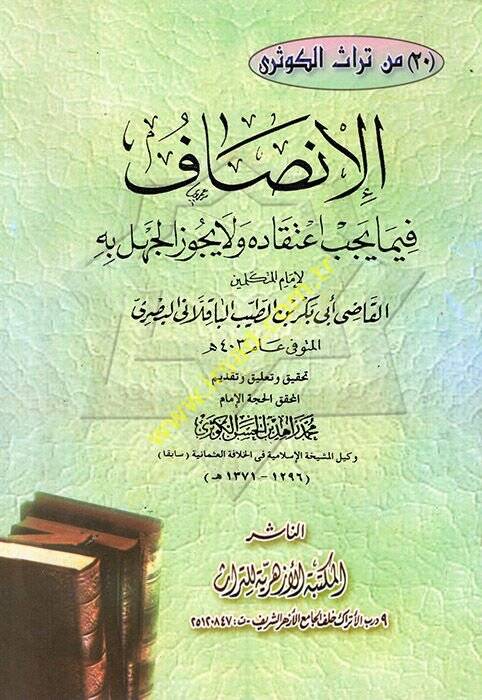 (٢٠) من تراث الكوثرى
الإنصاف
فيما يجب اعتقاده ولا يجوز الجهل به
لإمام المتكلمين
القاضى أبى بكر بن الطيب الباقلانى البصرى
المتوفى عام ٤٠٣ هـ
تحقيق وتعليق وتقديم
المحقق الحجة الإمام
محمد زاهد بن الحسن الكوثرى
وكيل المشيخة الإسلامية فى الخلافة العثمانية (سابقا)
(١٢٩٦ - ١٣٧١ هـ)
الناشر
المكتبة الأزهرية للتراث
٩ درب الأتراك خلف الجامع الأزهر الشريف - ت: ٢٥١٢٠٨٤٧